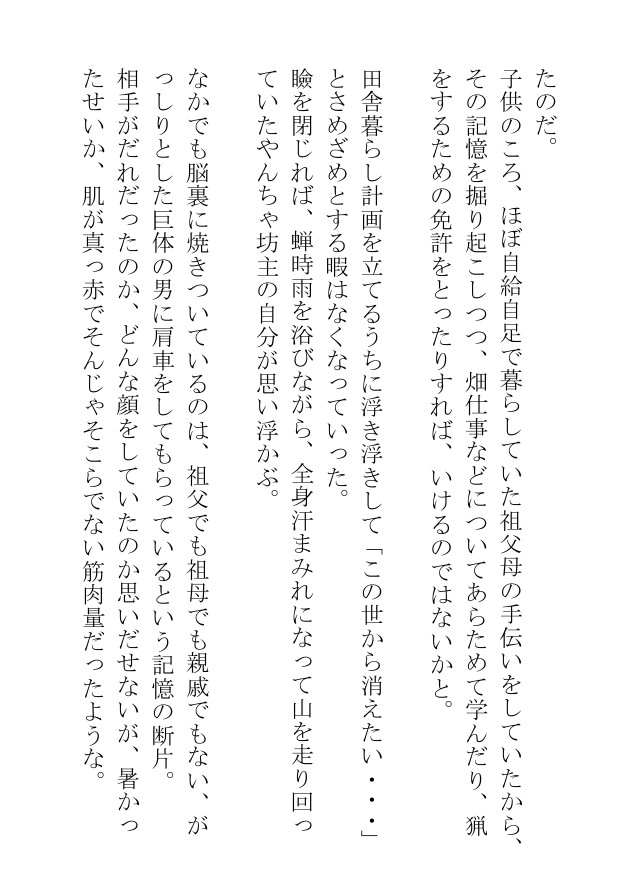 たのだ。
子供のころ、ほぼ自給自足で暮らしていた祖父母の手伝いをしていたから、
その記憶を掘り起こしつつ、畑仕事などについてあらためて学んだり、猟
をするための免許をとったりすれば、いけるのではないかと。
田舎暮らし計画を立てるうちに浮き浮きして「この世から消えたい・・・」
とさめざめとする暇はなくなっていった。
瞼を閉じれば、蝉時雨を浴びながら、全身汗まみれになって山を走り回っ
ていたやんちゃ坊主の自分が思い浮かぶ。
なかでも脳裏に焼きついているのは、祖父でも祖母でも親戚でもない、が
っしりとした巨体の男に肩車をしてもらっているという記憶の断片。
相手がだれだったのか、どんな顔をしていたのか思いだせないが、暑かっ
たせいか、肌が真っ赤でそんじゃそこらでない筋肉量だったような。